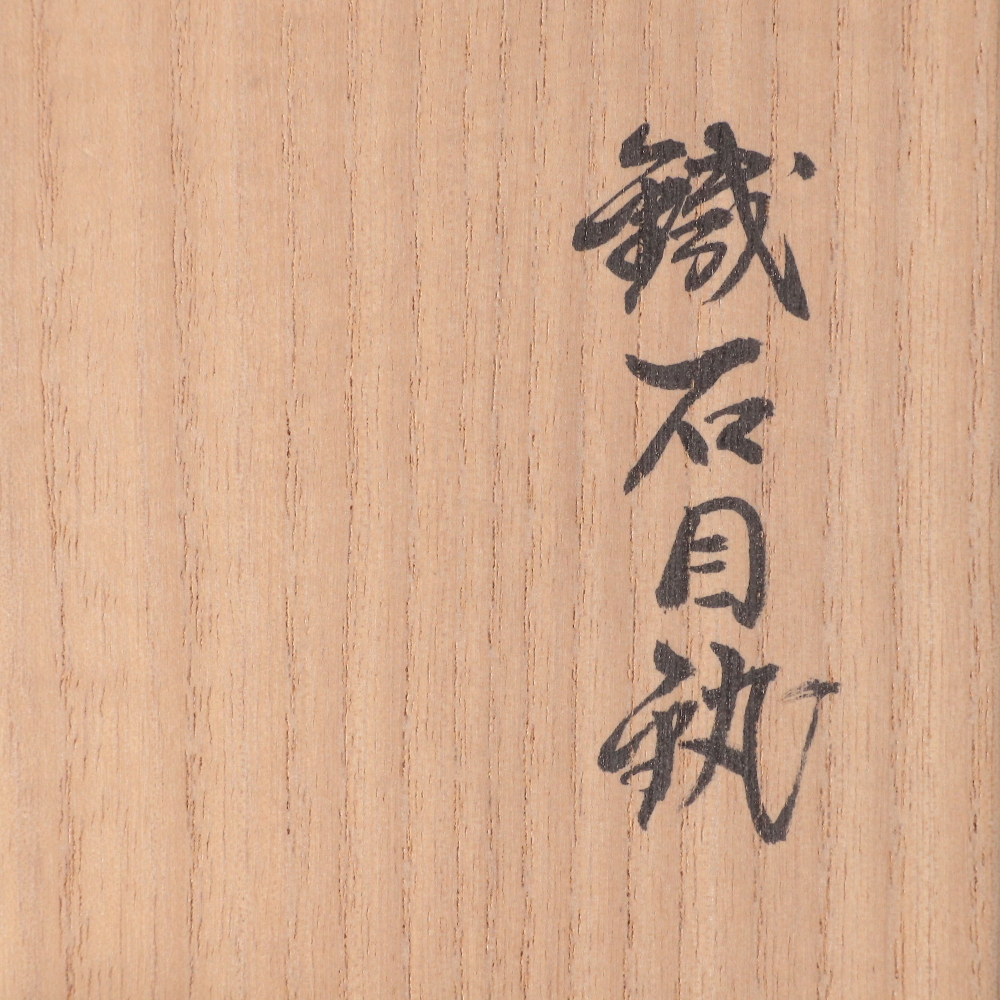 鐵石目釻